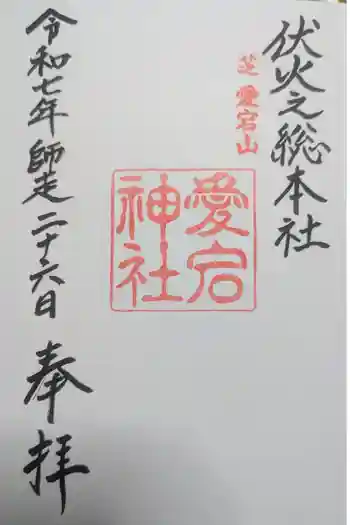 伏火之総本社
芝 愛宕山
愛宕
神社
令和七年師走二十六日
奉拝